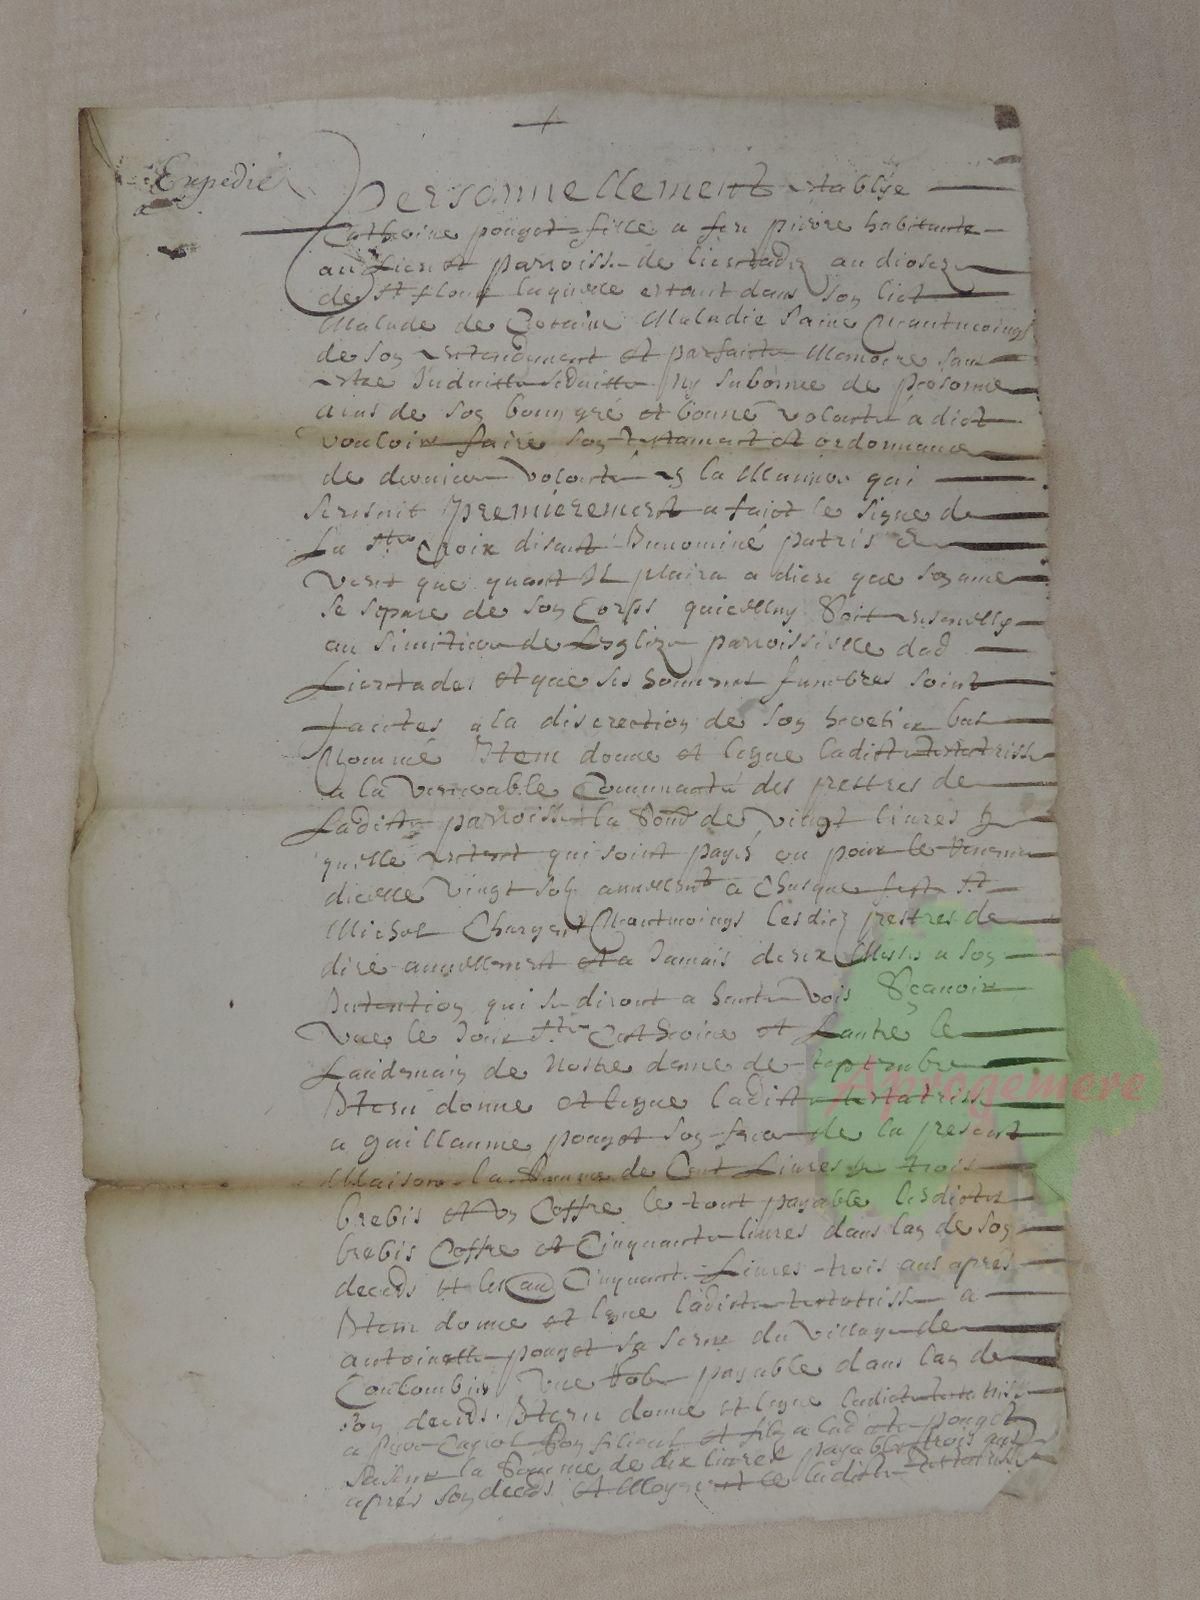 Expedié
Personnellement establye
Catherine pouget fille a feu pierre habitante
au Lieu et parroisse de lieutadez au diosez
de st flour laquelle estant dans son lict
Malade de Certaine Maladie saine Neantmoings
de son entendement et parfaitte Memoire sans
estre Induitte seduitte ny subornee de personne
ains de son bon gré et bonne volonté a dict
vouloir faire son testament et ordonnance
de derniere volonté en la Maniere qui
sensuit Premierement a faict le signe de
La ste Croix disant Innominé patris &
Veut que quant Il plaira a dieu que son ame
se separe de son Corps quicelluy soit ensevelly
au Simitiere de Leglize parroissielle dud
Lieutades et que ses honneurs funebres soint
faictes a la discrection de son heretier bas
Nommé Item donne et legue ladicte testatrisse
a la Venerable Communauté des prestres de
Ladicte parroisse la somme de Vingt livres
quelle entent qui soint payés ou pour le Revenu
dicelle Vingt sols annuellent a Chasque feste St
Michel Chargent Neantmoings lesdicz prestres de
dire annuellement et a Jamais deux Messes a son
Intention qui se diront a haute Vois Sçavoir
Vne le Jour Ste Catherine et Lautre le
Landemain de Nostre dame de septembre
Item donne et legue ladicte testatrisse
a guillaume pouget son frere de la presant
Maison la somme de Cent Livres trois
brebis et vn Coffre le tout payable lesdictes
brebis Coffre et Cinquante livres dans lan de son
deceds et les au Cinquante Livres trois ans apres
Item donne et legue ladicte testatrisse a
antoinette pouget sa seur du Village de
Coulombin vne Robe payable dans lan de
son deceds. Item donne et legue ladicte testatrisse
a pierre son filieul et filz a ladicte pouget
sa seur la Somme de dix livres payable trois ans
aprés son deceds Et ladicte testatrisse